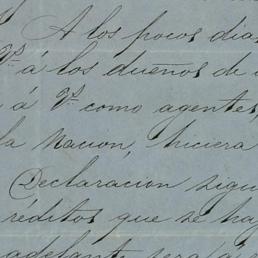 A los pocos dias
Vs á los dueños de
á Vs como agentes,
la Nacion, hiciera
Declaracion sigu
réditos que se ha
adelante sera